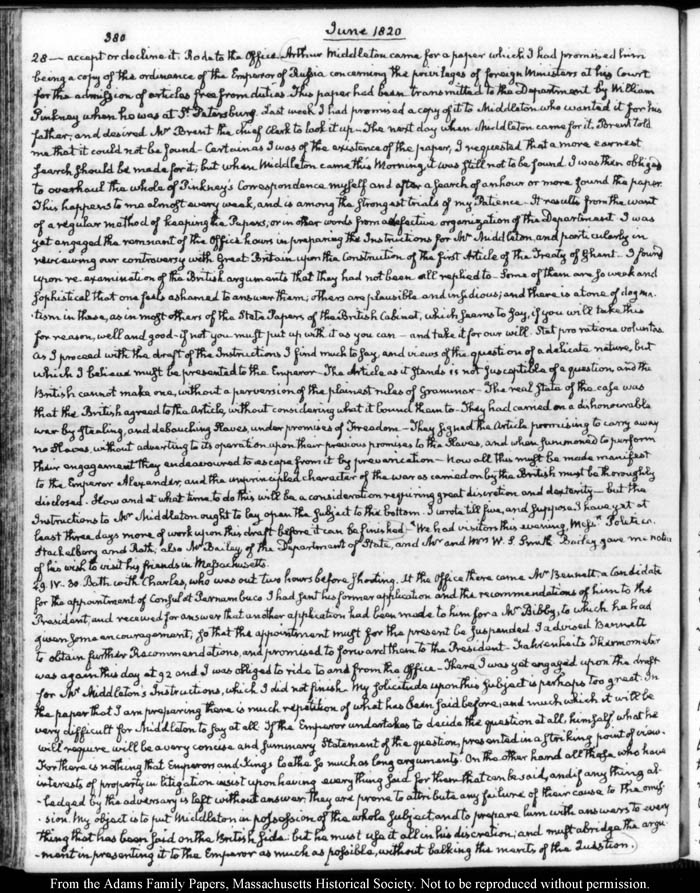 380
June 1820
28 — accept or decline it. Rode to the Office. Arthur Middleton came for a paper which I had promised him
being a copy of the ordinance of the Emperor of Russia concerning the privileges of foreign Ministers at his Court
for the admission of articles free from duties. This paper had been transmitted to the Department by William
Pinkney when he was at St. Petersburg. Last week I had promised a copy of it to Middleton who wanted it for his
father; and desired Mr Brent the chief Clerk to look it up — The next day when Middleton came for it, Brent told
me that it could not be found — Certain as I was of the existence of the paper, I requested that a more earnest
search should be made for it; but when Middleton came this Morning, it was still not to be found I was then obliged
to overhaul the whole of Pinkney's Correspondence myself and after a search of an hour or more found the paper.
This happens to me almost every week, and is among the strongest trials of my Patience — It results from the want
of a regular method of keeping the Papers, or in other words from a defective organization of the Department I was
yet engaged the remnant of the Office hours in preparing the Instructions for Mr Middleton, and particularly in
reviewing our controversy with Great Britain upon the Construction of the first Article of the Treaty of Ghent. I found
upon re-examination of the British arguments that they had not been all replied to — Some of them are so weak and
sophistical that one feels ashamed to answer them; others are plausible and insidious; and there is a tone of dogma-
tism in these, as in most others of the State Papers of the British Cabinet, which seems to say, if you will take this
for reason, well and good — if not you must put up with it as you can — and take it for our will. Stat pro ratione voluntas
As I proceed with the draft of the Instructions I find much to say, and views of the question of a delicate nature, but
which I believe must be presented to the Emperor — The Article as it stands is not susceptible of a question, and the
British cannot make one, without a perversion of the plainest rules of Grammar — The real state of the case was
that the British agreed to the Article, without considering what it bound them to — They had carried on a dishonourable
war by stealing, and debauching Slaves, under promises of Freedom — They signed the Article promising to carry away
no Slaves, without adverting to its operation upon their previous promises to the Slaves, and when summoned to perform
their engagement they endeavoured to escape from it by prevarication — Now all this must be made manifest
to the Emperor Alexander, and the unprincipled character of the war as carried on by the British must be thoroughly
disclosed. How and at what time to do this will be a consideration requiring great discretion and dexterity — but the
Instructions to Mr Middleton ought to lay open the subject to the bottom. I wrote till five, and suppose I have yet at
least three days more of work upon this draft before it can be finished — We had visitors this evening, Messrs Poletica,
Stackelberg and Roth, also Mr Bailey of the Department of State, and Mr and Mrs W. S. Smith Bailey gave me notice
of his wish to visit his friends in Massachusetts.
29. IV. 30. Bath with Charles, who was out two hours before shooting. At the Office there came Mr Bennett, a Candidate
for the appointment of Consul at Pernambuco I had sent his former application and the recommendations of him to the
President, and received for answer that another application had been made to him for a Mr Bibby, to which he had
given some encouragement, so that the appointment must for the present be suspended I advised Bennett
to obtain further Recommendations, and promised to forward them to the President — Fahrenheit's Thermometer
was again this day at 92 and I was obliged to ride to and from the Office — There I was yet engaged upon the draft
for Mr Middleton's Instructions, which I did not finish My solicitude upon this subject is perhaps too great. In
the paper that I am preparing there is much repetition of what has been said before, and much which it will be
very difficult for Middleton to say at all. If the Emperor undertakes to decide the question at all, himself, what he
will require will be a very concise and summary Statement of the question, presented in a striking point of view.
For there is nothing that Emperors and Kings loathe so much as long arguments. On the other hand all those who have
interests of property in litigation insist upon having every thing said for them that can be said, and if any thing al-
-ledged by the adversary is left without answer, they are prone to attribute any failure of their cause to the omis-
-sion. My object is to put Middleton in possession of the whole subject and to prepare him with answers to every
thing that has been said on the British side. but he must use it all in his discretion; and must abridge the argu-
-ment in presenting it to the Emperor as much as possible, without balking the merits of the Question.
From the Adams Family Papers, Massachusetts Historical Society. Not to be reproduced without permission.